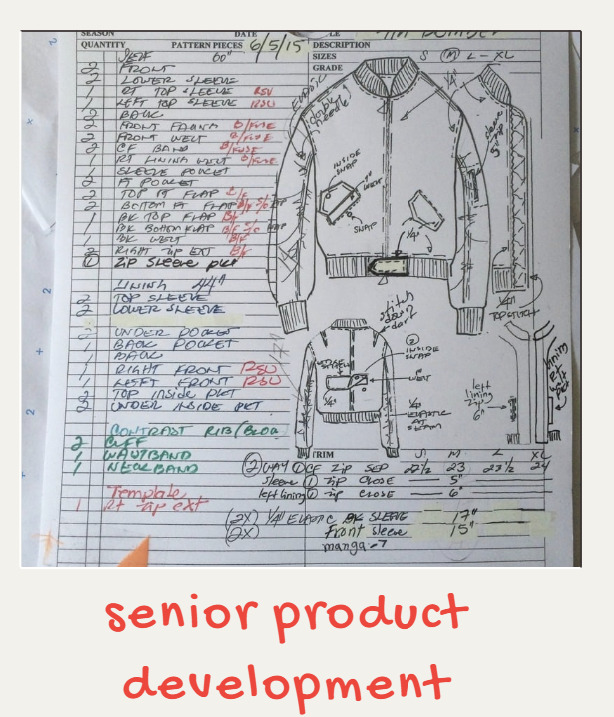 SEASON DATE
QUANTITY PATTERN PIECES 6/5/15 DESCRIPTION
SELF 60" SIZES S M L - XL
2 FRONT GRADE
2 LOWER SLEEVE
1 RT TOP SLEEVE RSU
1 LEFT TOP SLEEVE RSU
2 BACK
2 FRONT FACING B/FUSE
2 FRONT WELT B/FUSE
2 CF BAND B/FUSE
1 RT LINING WELT B/FUSE
1 SLEEVE POCKET
2 FT POCKET
2 TOP FT FLAP B/F
2 BOTTOM FT FLAP B/F S/O
1 BK TOP FLAP B/F
1 BK BOTTOM FLAP B/F S/O
1 BK WELT B/F
2 RIGHT ZIP EXT B/F
1 ZIP SLEEVE PKT
LINING 44"
2 TOP SLEEVE
2 LOWER SLEEVE
2 UNDER POCKET
1 BACK POCKET
1 BACK
1 RIGHT FRONT RSU
1 LEFT FRONT RSU
2 TOP INSIDE PKT
2 UNDER INSIDE PKT
CONTRAST RIB/
2 CUFF
1 WAISTBAND
1 NECKBAND
Template
1 Rt zip ext
ELASTIC
double needle
1/4"
INSIDE SNAP
1" WELT
SNAP
1/4"
1/4"
TOP STITCH
stitch down 2 darts
2 INSIDE SNAP
1" WELT
1/4 ELASTIC AT SEAM
left lining zip 6"
lining Rt
TRIM S M L XL
2 WAY 1 CF ZIP SEP 22 1/2 23 23 1/2 24
sleeve 1 ZIP CLOSE — 5"
left lining 1 zip CLOSE — 6"
(2X) 1/4" ELASTIC BK SLEEVE — 17"
(2X) Front sleeve — 15"
manga
senior product
development